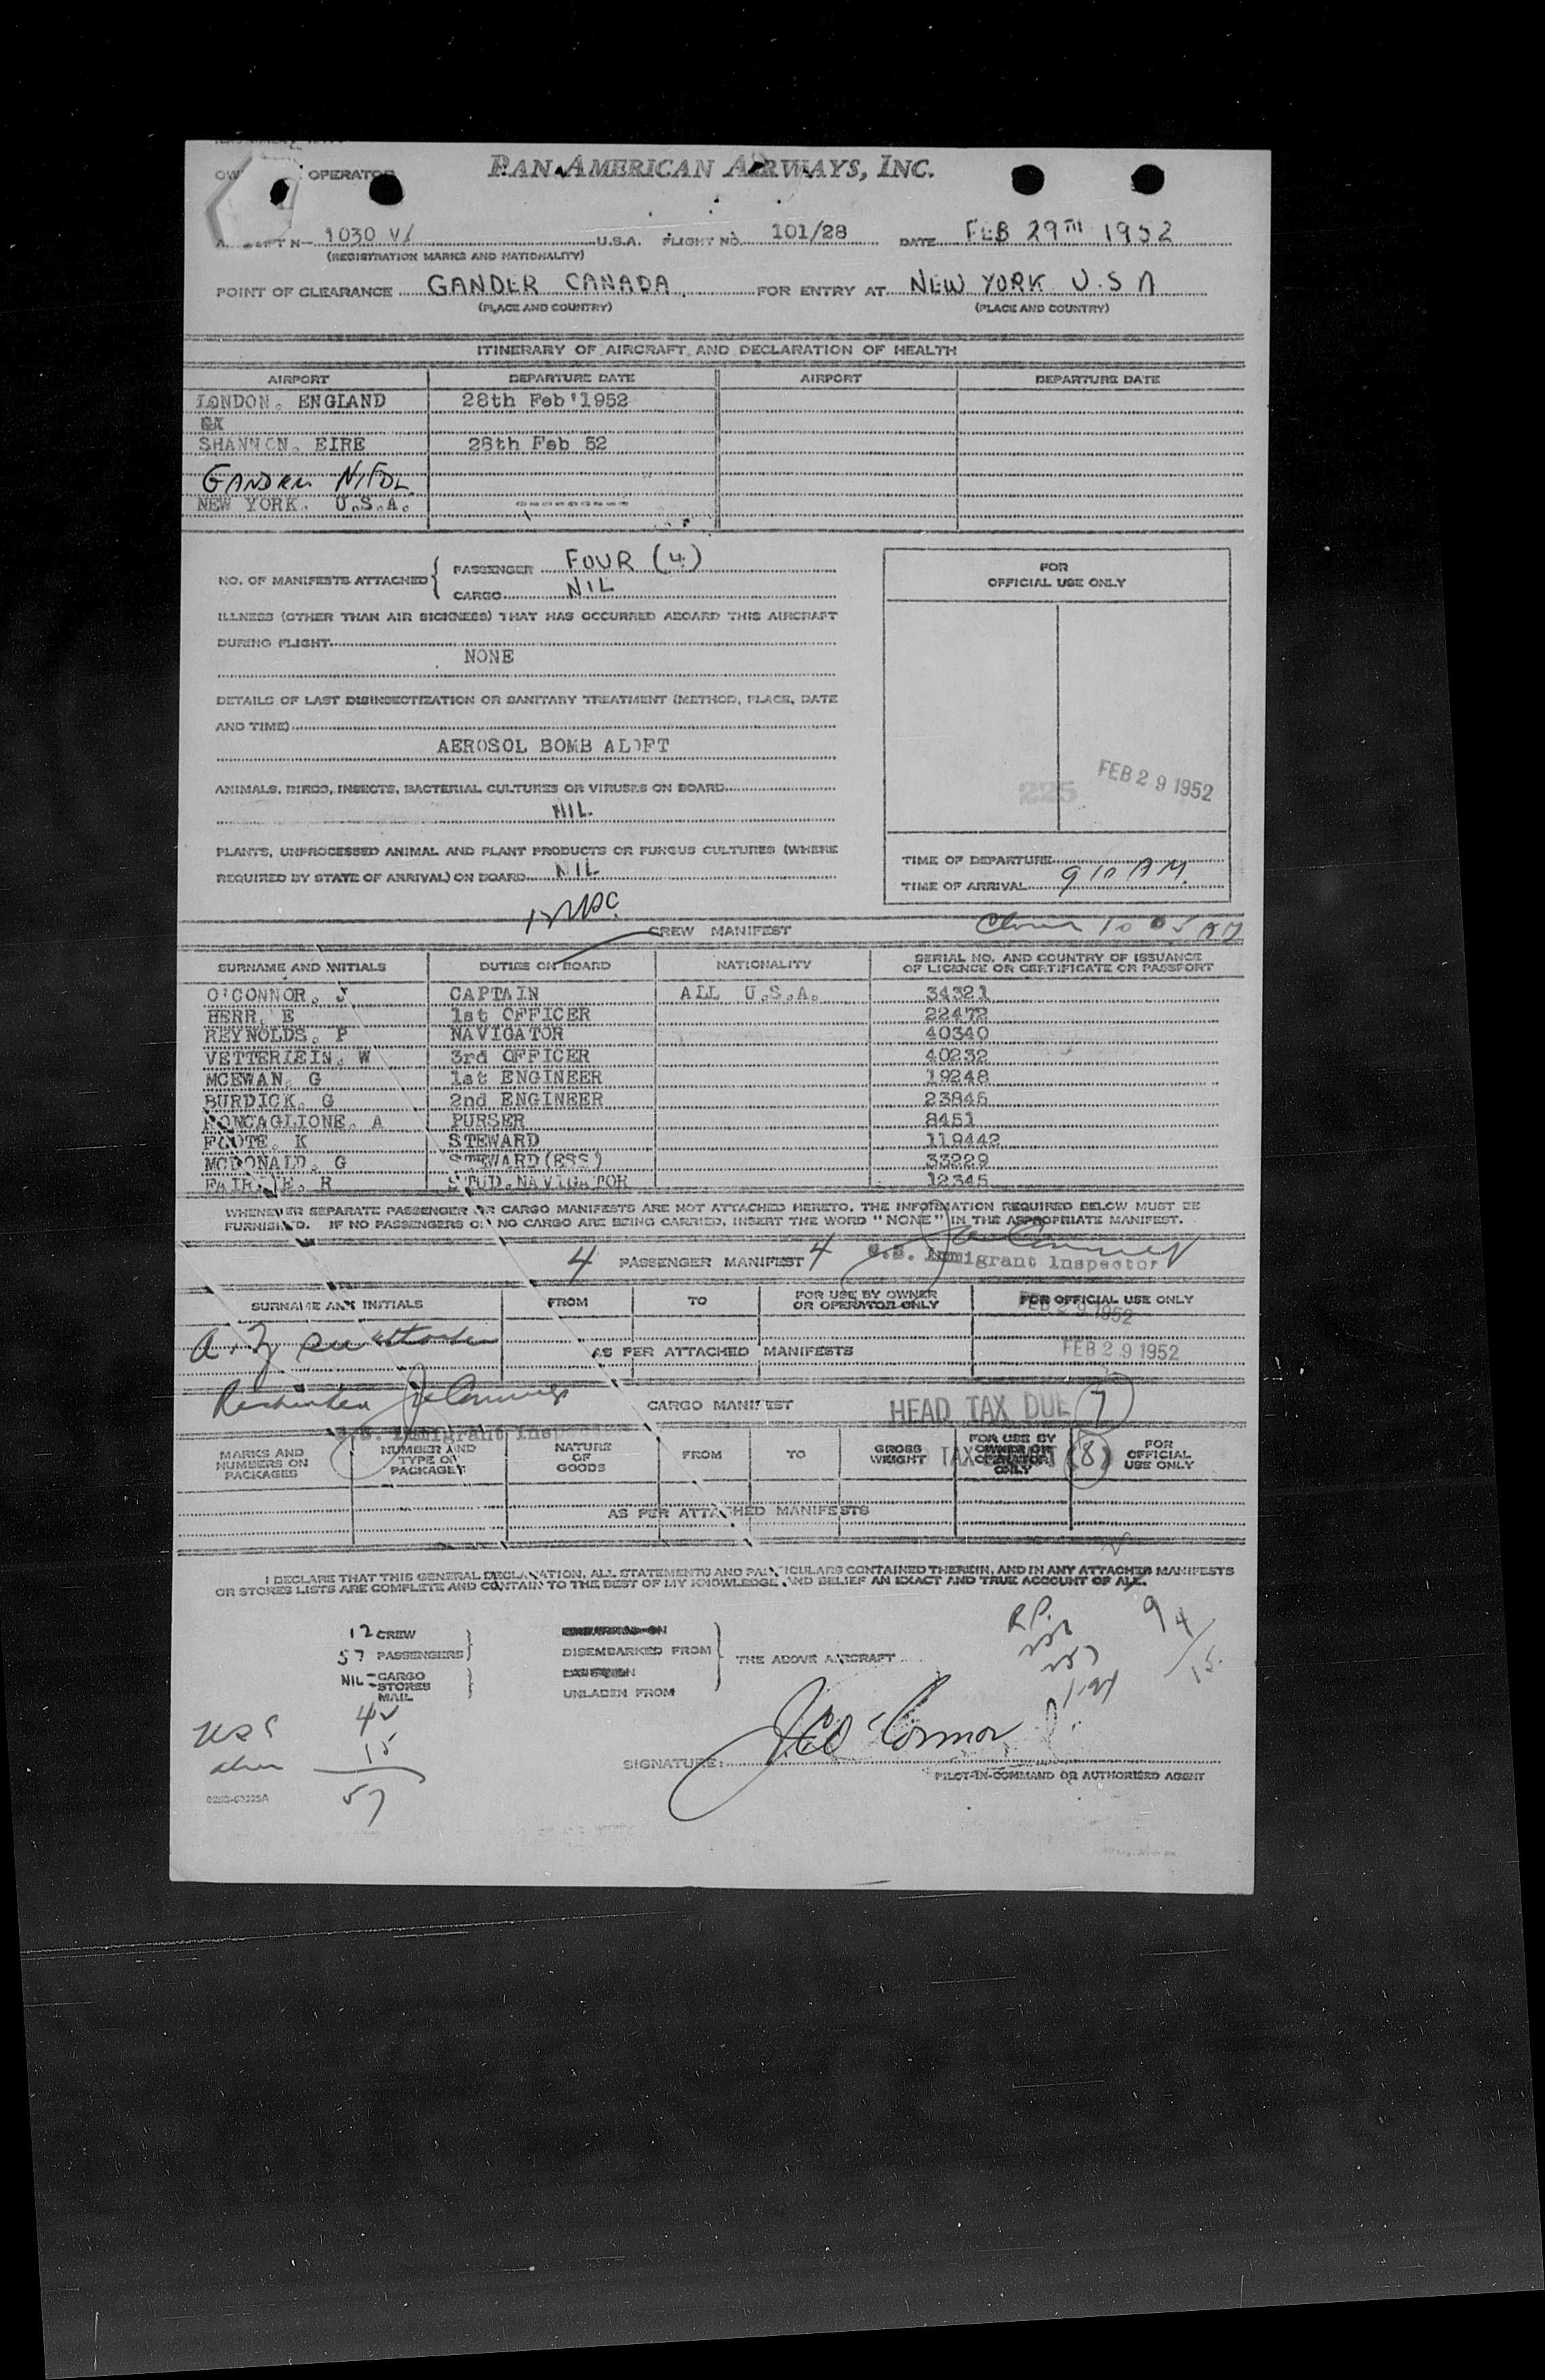 OPERATOR PAN AMERICAN AIRWAYS, INC.
1030 V U.S.A. FLIGHT NO. 101/28 DATE FEB 29TH 1952
(REGISTRATION MARKS AND NATIONALITY)
POINT OF CLEARANCE GANDER CANADA FOR ENTRY AT NEW YORK U.S A
(PLACE AND COUNTRY) (PLACE AND COUNTRY)
ITINERARY OF AIRCRAFT AND DECLARATION OF HEALTH
AIRPORT DEPARTURE DATE AIRPORT DEPARTURE DATE
LONDON. ENGLAND 28th Feb'1952
SHANNON. EIRE 28th Feb 52
GANDER NFDL
NEW YORK. U.S.A. ---------
NO. OF MANIFESTS ATTACHED { PASSENGER FOUR (4)
CARGO NIL
FOR
OFFICIAL USE ONLY
ILLNESS (OTHER THAN AIR SICKNESS) THAT HAS OCCURRED ABOARD THIS AIRCRAFT
DURING FLIGHT
NONE
DETAILS OF LAST DISINSECTIZATION OR SANITARY TREATMENT (METHOD, PLACE, DATE
AND TIME)
AEROSOL BOMB ALOFT
ANIMALS, BIRDS, INSECTS, BACTERIAL CULTURES OR VIRUSES ON BOARD
NIL.
225 FEB 29 1952
PLANTS, UNPROCESSED ANIMAL AND PLANT PRODUCTS OR FUNGUS CULTURES (WHERE
REQUIRED BY STATE OF ARRIVAL) ON BOARD NIL
TIME OF DEPARTURE
TIME OF ARRIVAL 9 10 AM.
CREW MANIFEST
SURNAME AND INITIALS DUTIES ON BOARD NATIONALITY SERIAL NO. AND COUNTRY OF ISSUANCE
OF LICENCE OR CERTIFICATE OR PASSPORT
O'CONNOR. J CAPTAIN ALL U.S.A. 34321
HERR. E 1st OFFICER 22472
REYNOLDS. P NAVIGATOR 40340
VETTERLEIN. W 3rd OFFICER 40232
MCEWAN. G 1st ENGINEER 19248
BURDICK. G 2nd ENGINEER 23845
RONCAGLIONE. A PURSER 8451
FOOTE. K STEWARD 119442
MCDONALD. G STEWARD(ESS) 33229
R STUD.NAVIGATOR 12345
WHENEVER SEPARATE PASSENGER OR CARGO MANIFESTS ARE NOT ATTACHED HERETO, THE INFORMATION REQUIRED BELOW MUST BE
FURNISHED. IF NO PASSENGERS OR NO CARGO ARE BEING CARRIED, INSERT THE WORD "NONE" IN THE APPROPRIATE MANIFEST.
4 PASSENGER MANIFEST 4 U.S. Immigrant Inspector
SURNAME AND INITIALS FROM TO FOR USE BY OWNER
OR OPERATOR ONLY FOR OFFICIAL USE ONLY
FEB 29 1952
AS PER ATTACHED MANIFESTS FEB 29 1952
CARGO MANIFEST HEAD TAX DUE 7
U.S. Immigrant Inspector
MARKS AND
NUMBERS ON
PACKAGES NUMBER AND
TYPE OF
PACKAGES NATURE
OF
GOODS FROM TO GROSS
WEIGHT FOR USE BY
OWNER OR
OPERATOR
ONLY FOR
OFFICIAL
USE ONLY
TAX (8)
AS PER ATTACHED MANIFESTS
I DECLARE THAT THIS GENERAL DECLARATION, ALL STATEMENTS AND PARTICULARS CONTAINED THEREIN, AND IN ANY ATTACHED MANIFESTS
OR STORES LISTS ARE COMPLETE AND CONTAIN TO THE BEST OF MY KNOWLEDGE AND BELIEF AN EXACT AND TRUE ACCOUNT OF ALL.
12 CREW
57 PASSENGERS DISEMBARKED FROM THE ABOVE AIRCRAFT
NIL - CARGO
STORES
MAIL UNLADEN FROM
15
57
SIGNATURE: J.E.O'Connor
PILOT-IN-COMMAND OR AUTHORISED AGENT